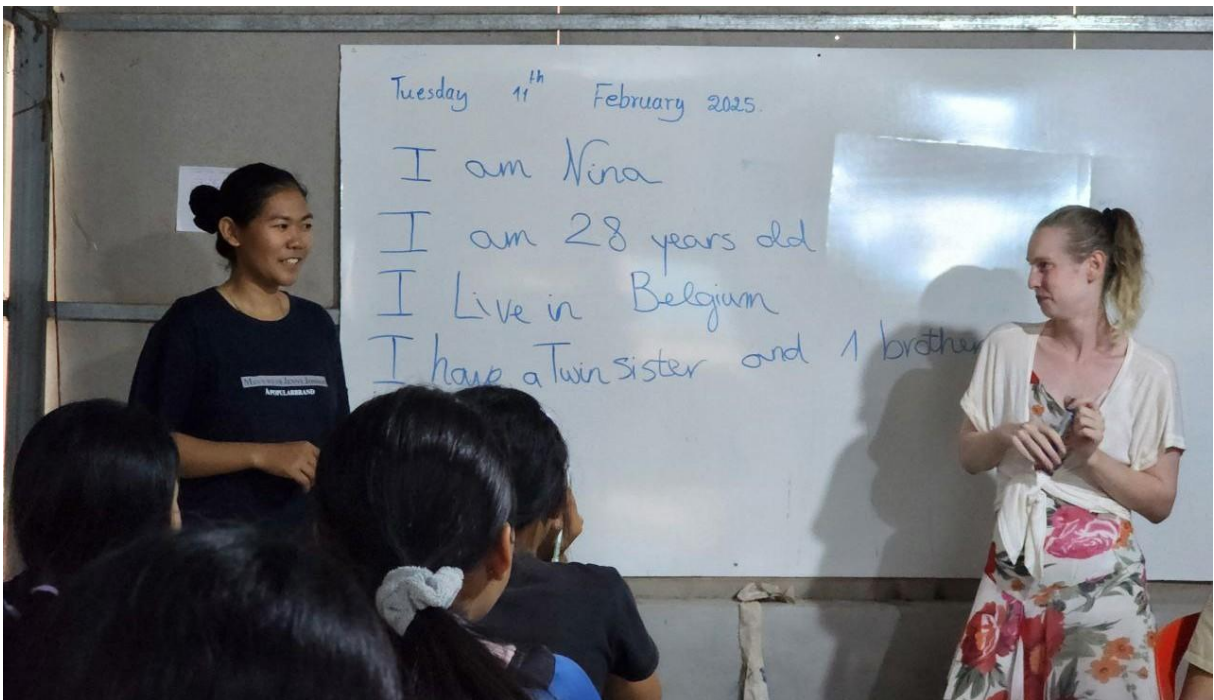 Tuesday 11th February 2025.
I am Nina
I am 28 years old
I Live in Belgium
I have a Twin sister and 1 brother
APOPULARBRAND